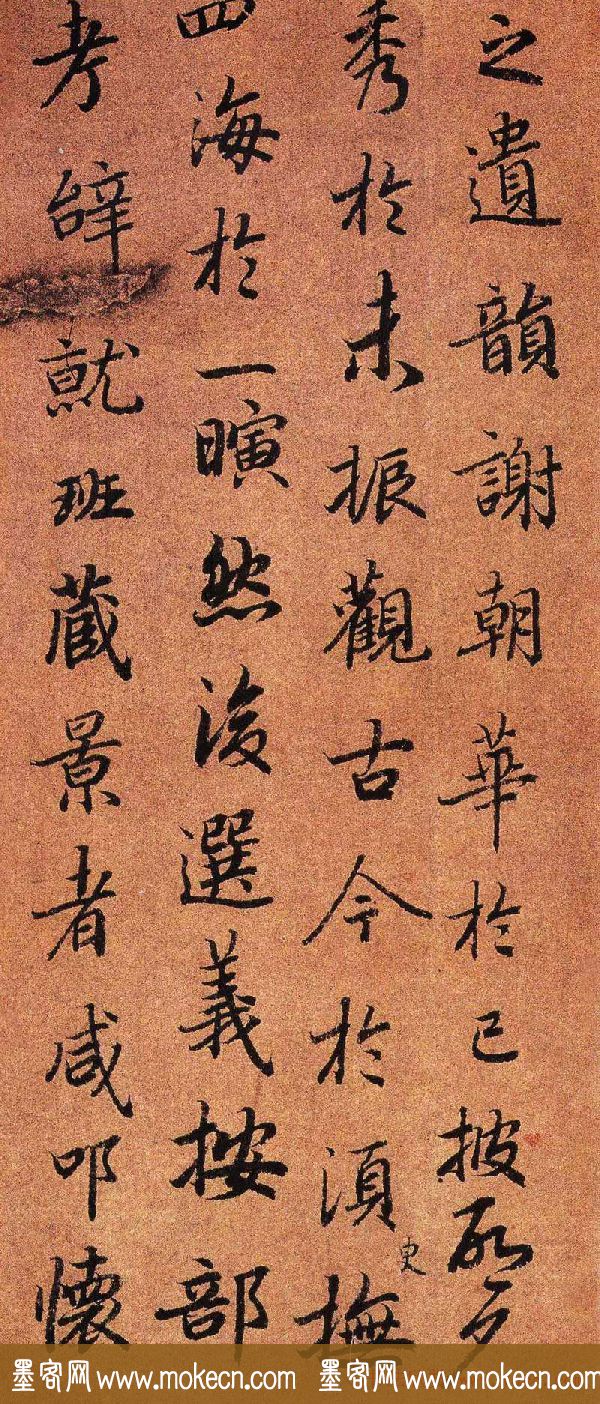 之遺韻謝朝華於已披啓夕
秀於未振觀古今於須臾撫
四海於一瞚然後選義按部
考辝就班藏景者咸叩懷
墨客网 www.mokecn.com 墨客网 www.mokecn.com